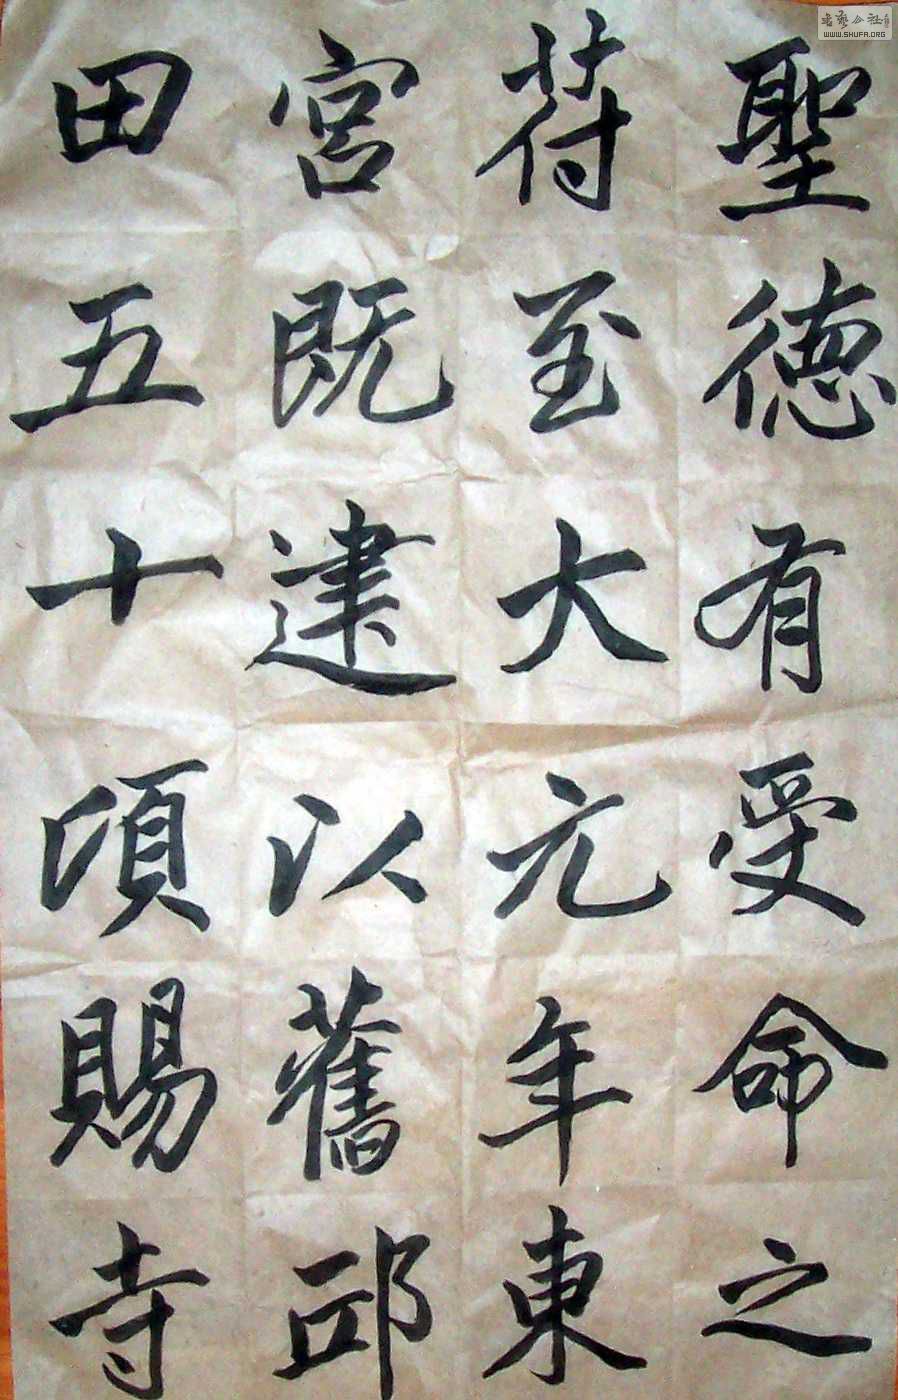 聖德有受命之
苻至大元年東
宮既建以舊邸
田五十頃賜寺
WWW.SHUFA.ORG